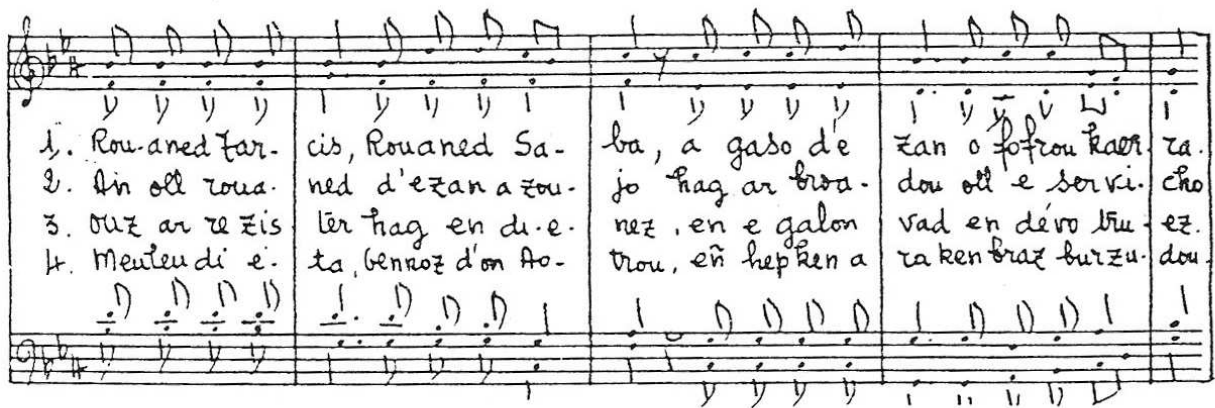 1. Rou-aned Tar- cis, Rouaned Sa- ba, a gaso d'e zan o fofrou kaer. ra.
2. An oll roua- ned d'ezan a zou- jo hag ar broa- dou oll e servi- cho
3. ouz ar re zis ter hag en di-e- nez, en e galon vad en dévo tru- ez.
4. Meuleudi e- ta, bennoz d'on Ao- trou, eñ hepken a ra ken braz burzu- dou.